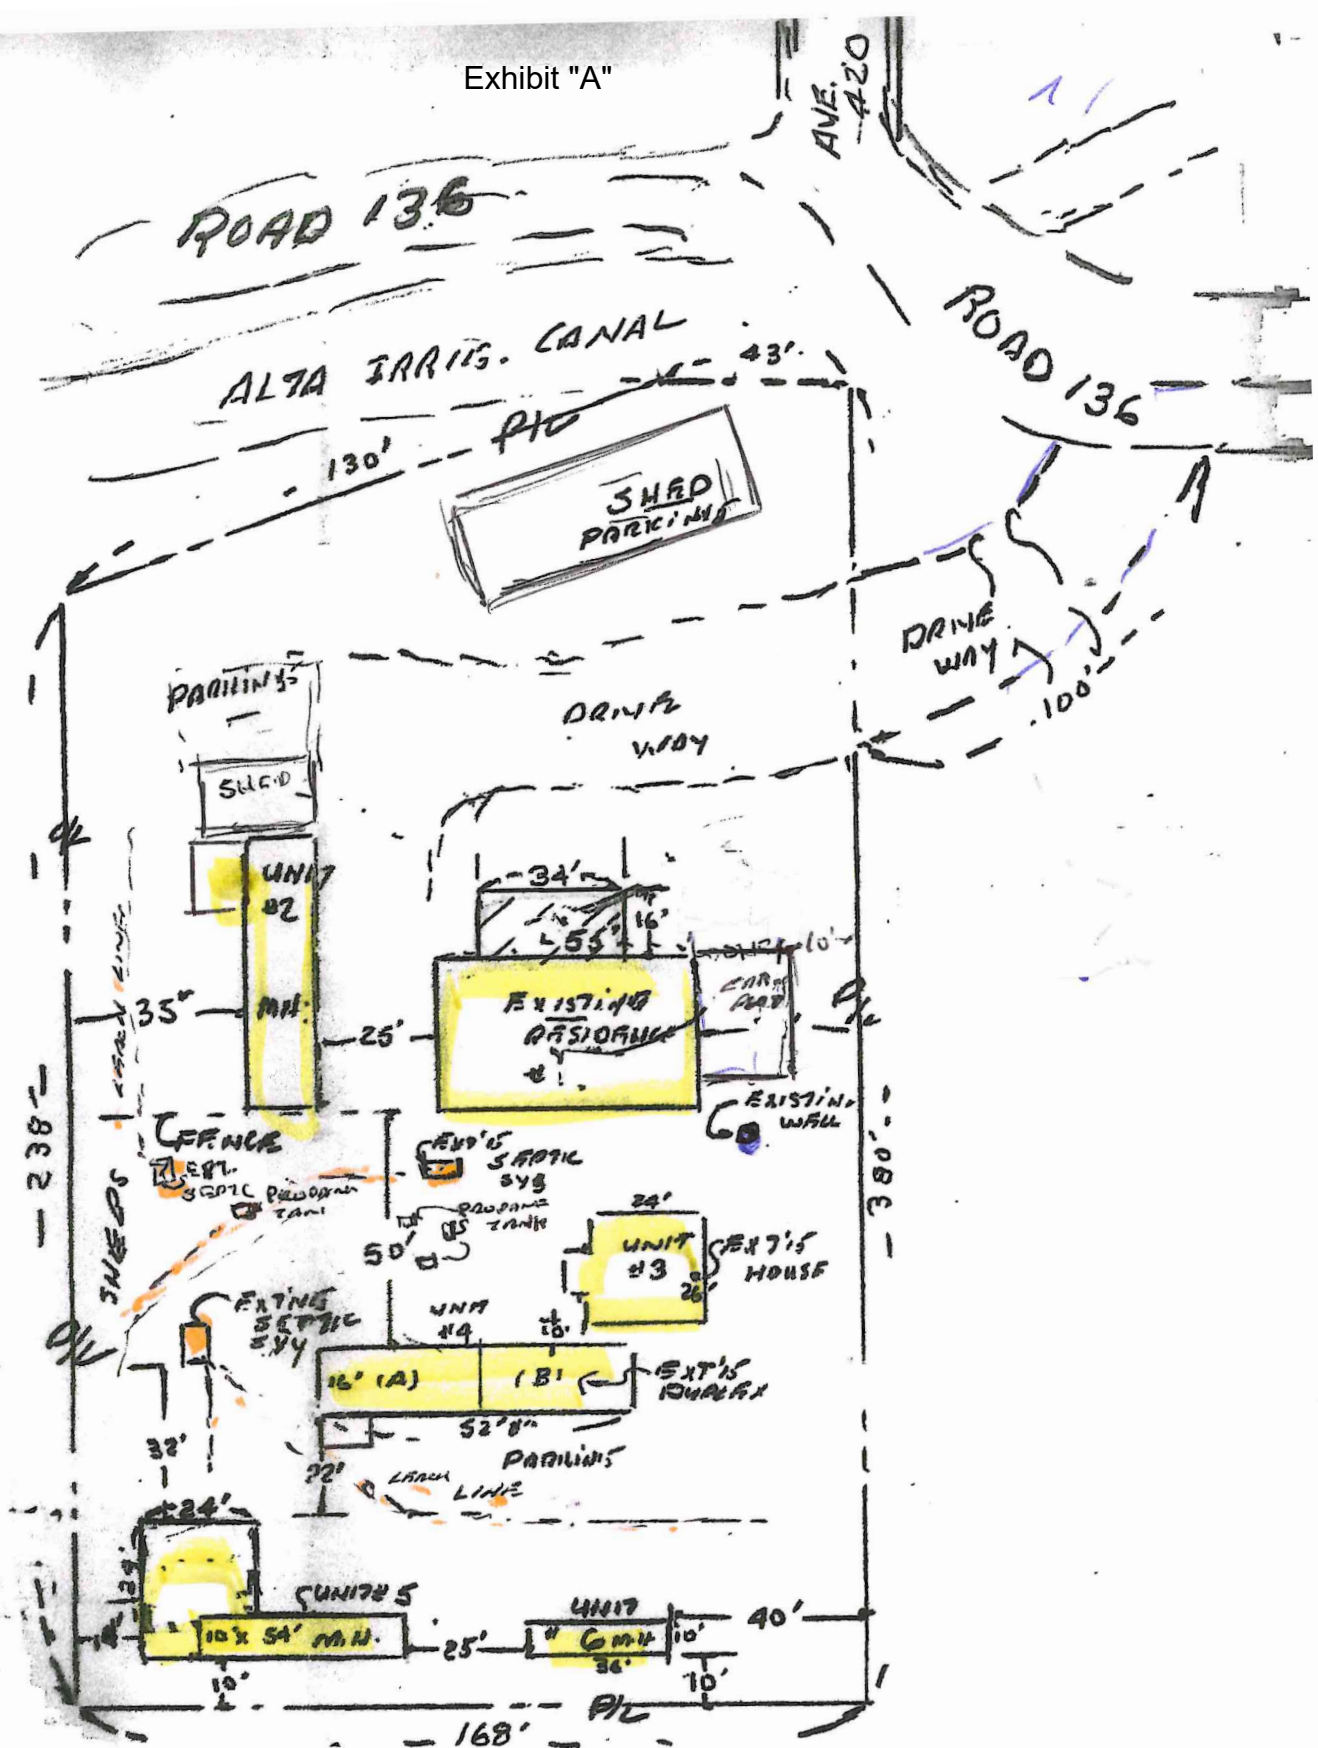 Exhibit "A"
AVE.
420
ROAD 136
ROAD 136
ALTA IRRIG. CANAL
43'
P/L
130'
SHED
PARKING
DRIVE
WAY
100'
PARKING
DRIVE
WAY
SHED
P/L
UNIT
#2
34'
16'
55'
10'
CAR
PORT
LEACH LINE
35'
M.H.
25'
EXISTING
RESIDENCE
#1
P/L
EXISTING
WELL
FENCE
EXT'G
SEPTIC
SYS
238'
380'
SEPTIC
PROPANE
TANK
PROPANE
TANK
50'
24'
UNIT
#3
26'
EXT'G
HOUSE
SHEDS
EXT'NG
SEPTIC
SYS
UNIT
#4
10'
P/L
16' (A)
(B)
EXT'G
DUPLEX
52'8"
32'
22'
PARKING
LEACH
LINE
24'
24'
UNIT # 5
UNIT
40'
10' x 54' M.H.
25'
# 6 M.H
10'
36'
10'
10'
P/L
168'